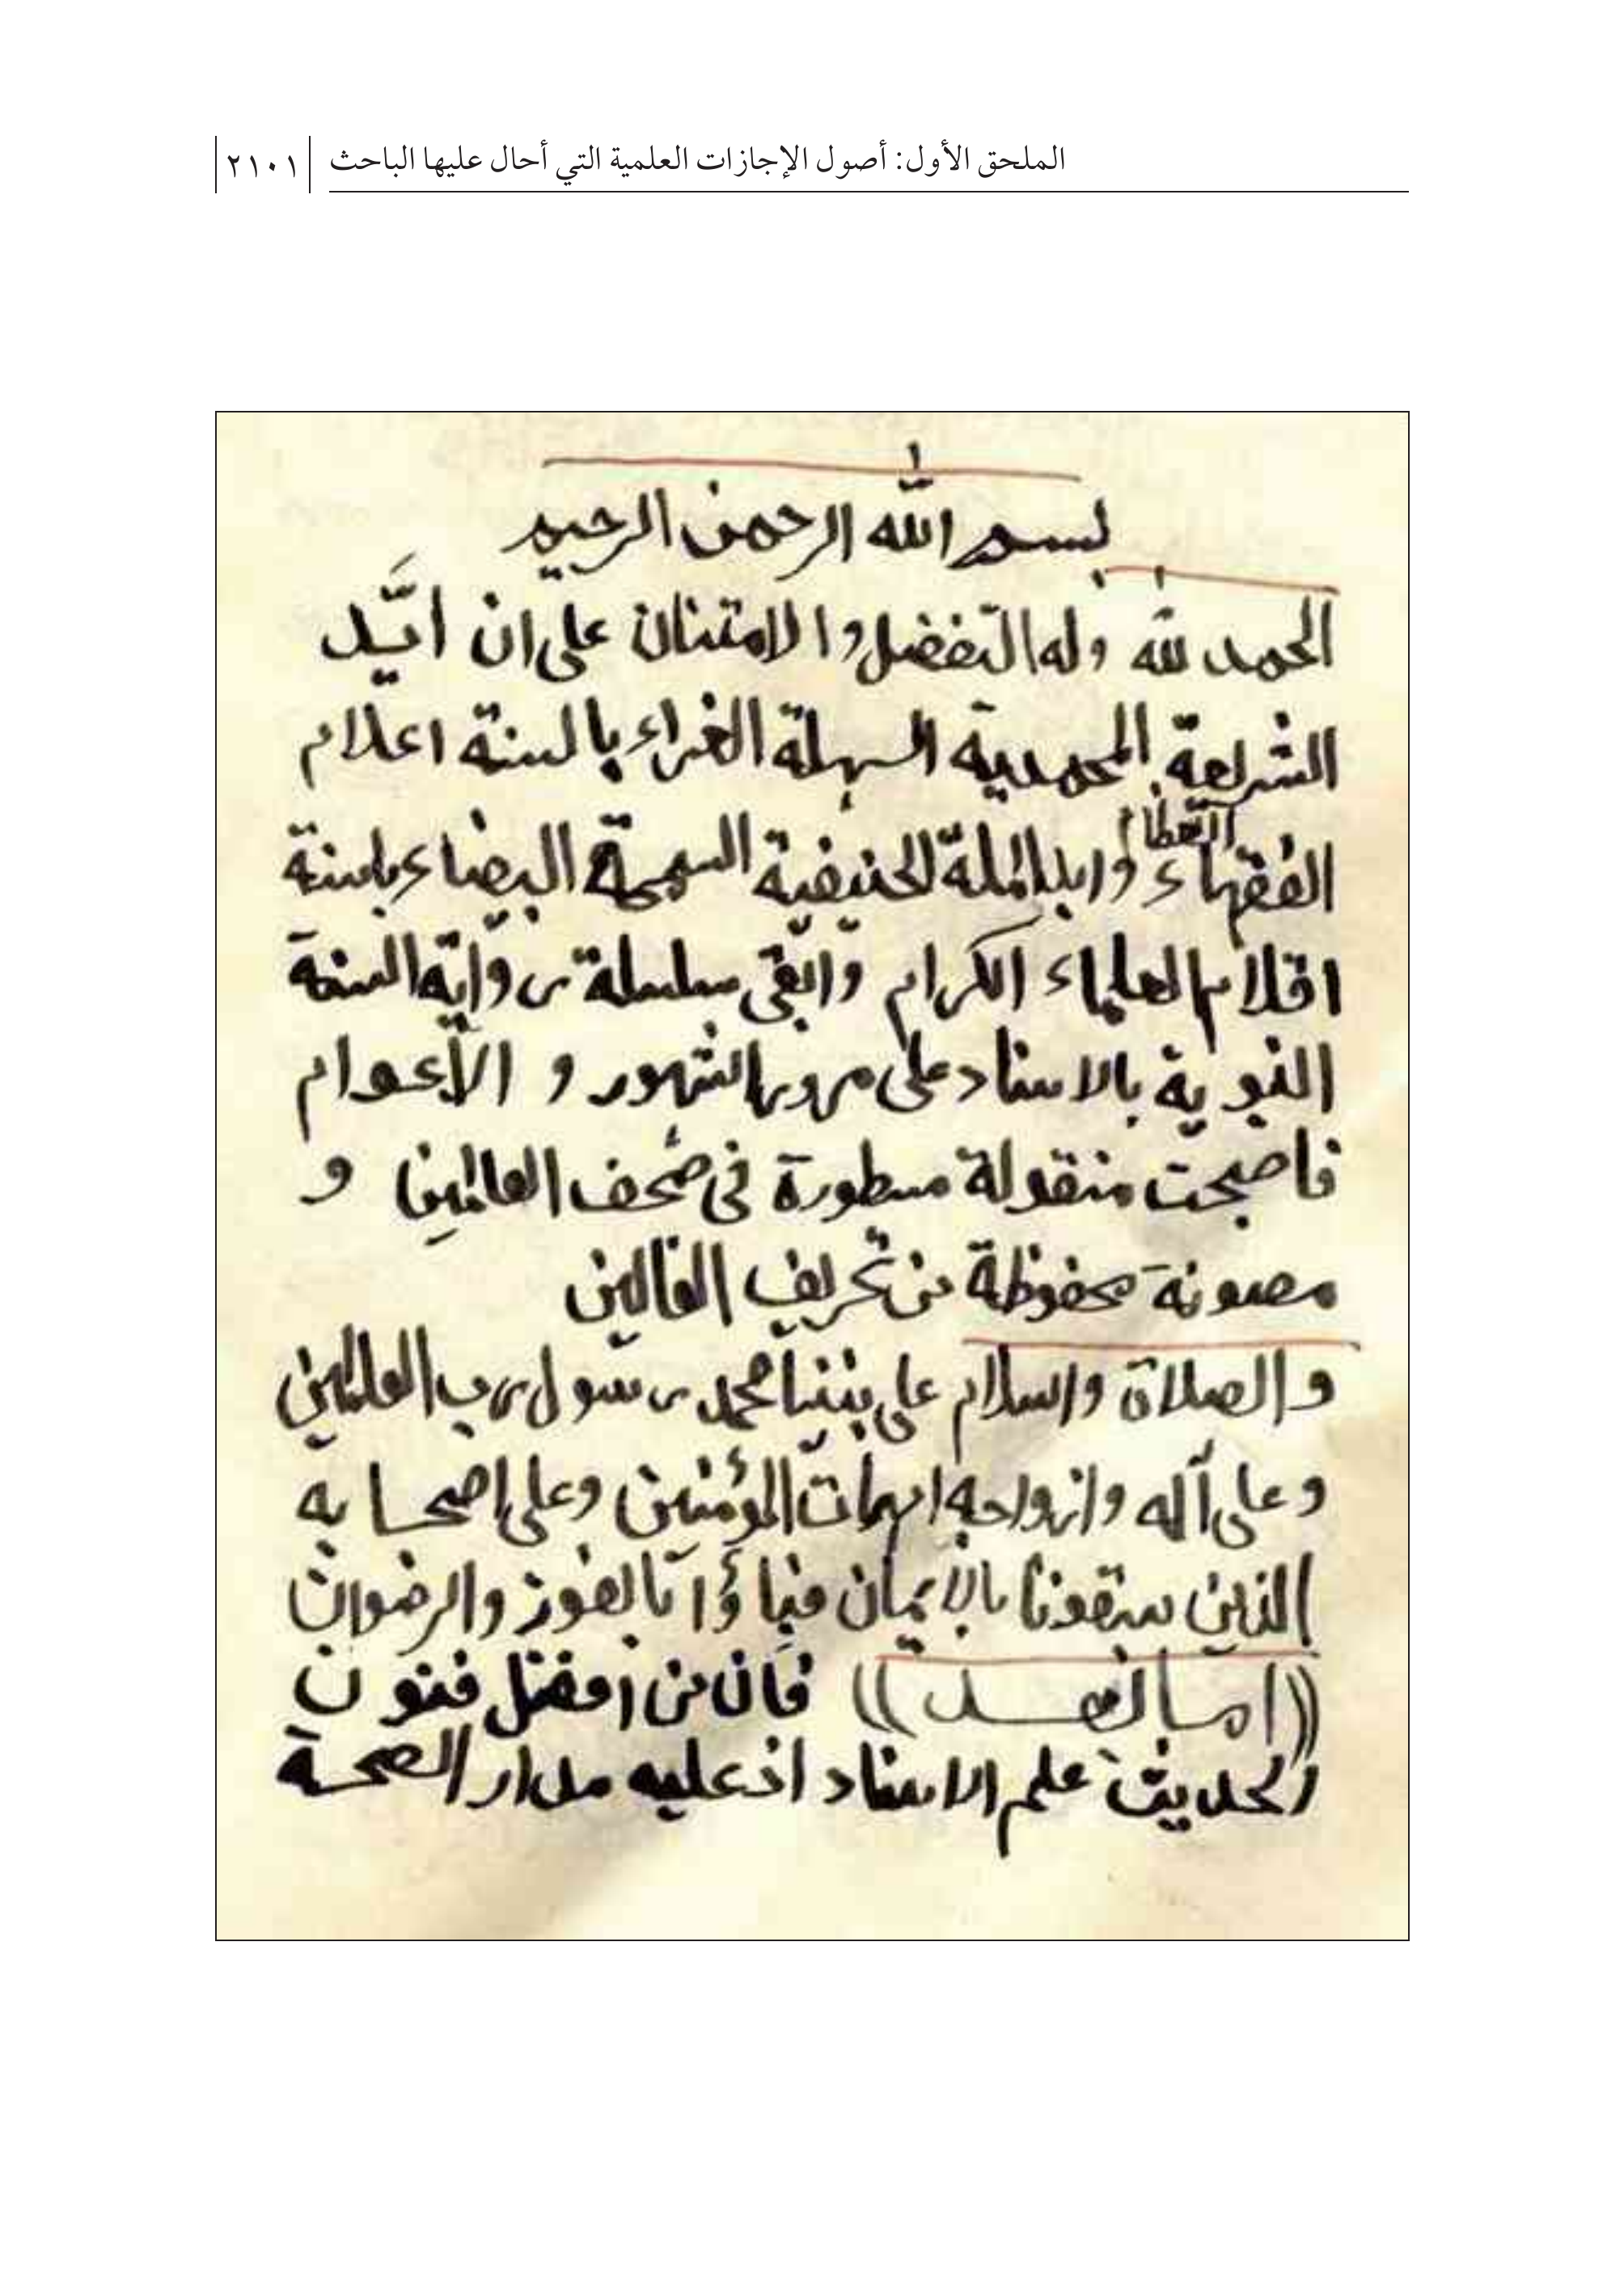 الملحق الأول: أصول الإجازات العلمية التي أحال عليها الباحث ٢١٠١
بسم الله الرحمن الرحيم
الحمد لله وله التفضل والامتنان على ان ايَّد
الشريعة المحمدية السهلة الغراء بالسنة اعلام
الفقهاء العظام وايد الملة الحنيفية السمحة البيضاء باسنة
اقلام العلماء الكرام وابقى سلسلة رواية السنة
النبوية بالاسناد على مرور الشهور و الأعوام
فاصبحت منقولة مسطورة في صُحف العالمين و
مصونة محفوظة من تحريف الغالين
والصلاة والسلام على نبينا محمد رسول رب العالمين
وعلى آله وازواجه امهات المؤمنين وعلى اصحابه
الذين سبقونا بالإيمان بالفوز والرضوان
((اما بعد)) فان من افضل فنون
الحديث علم الاسناد اذ عليه مدار الصحة